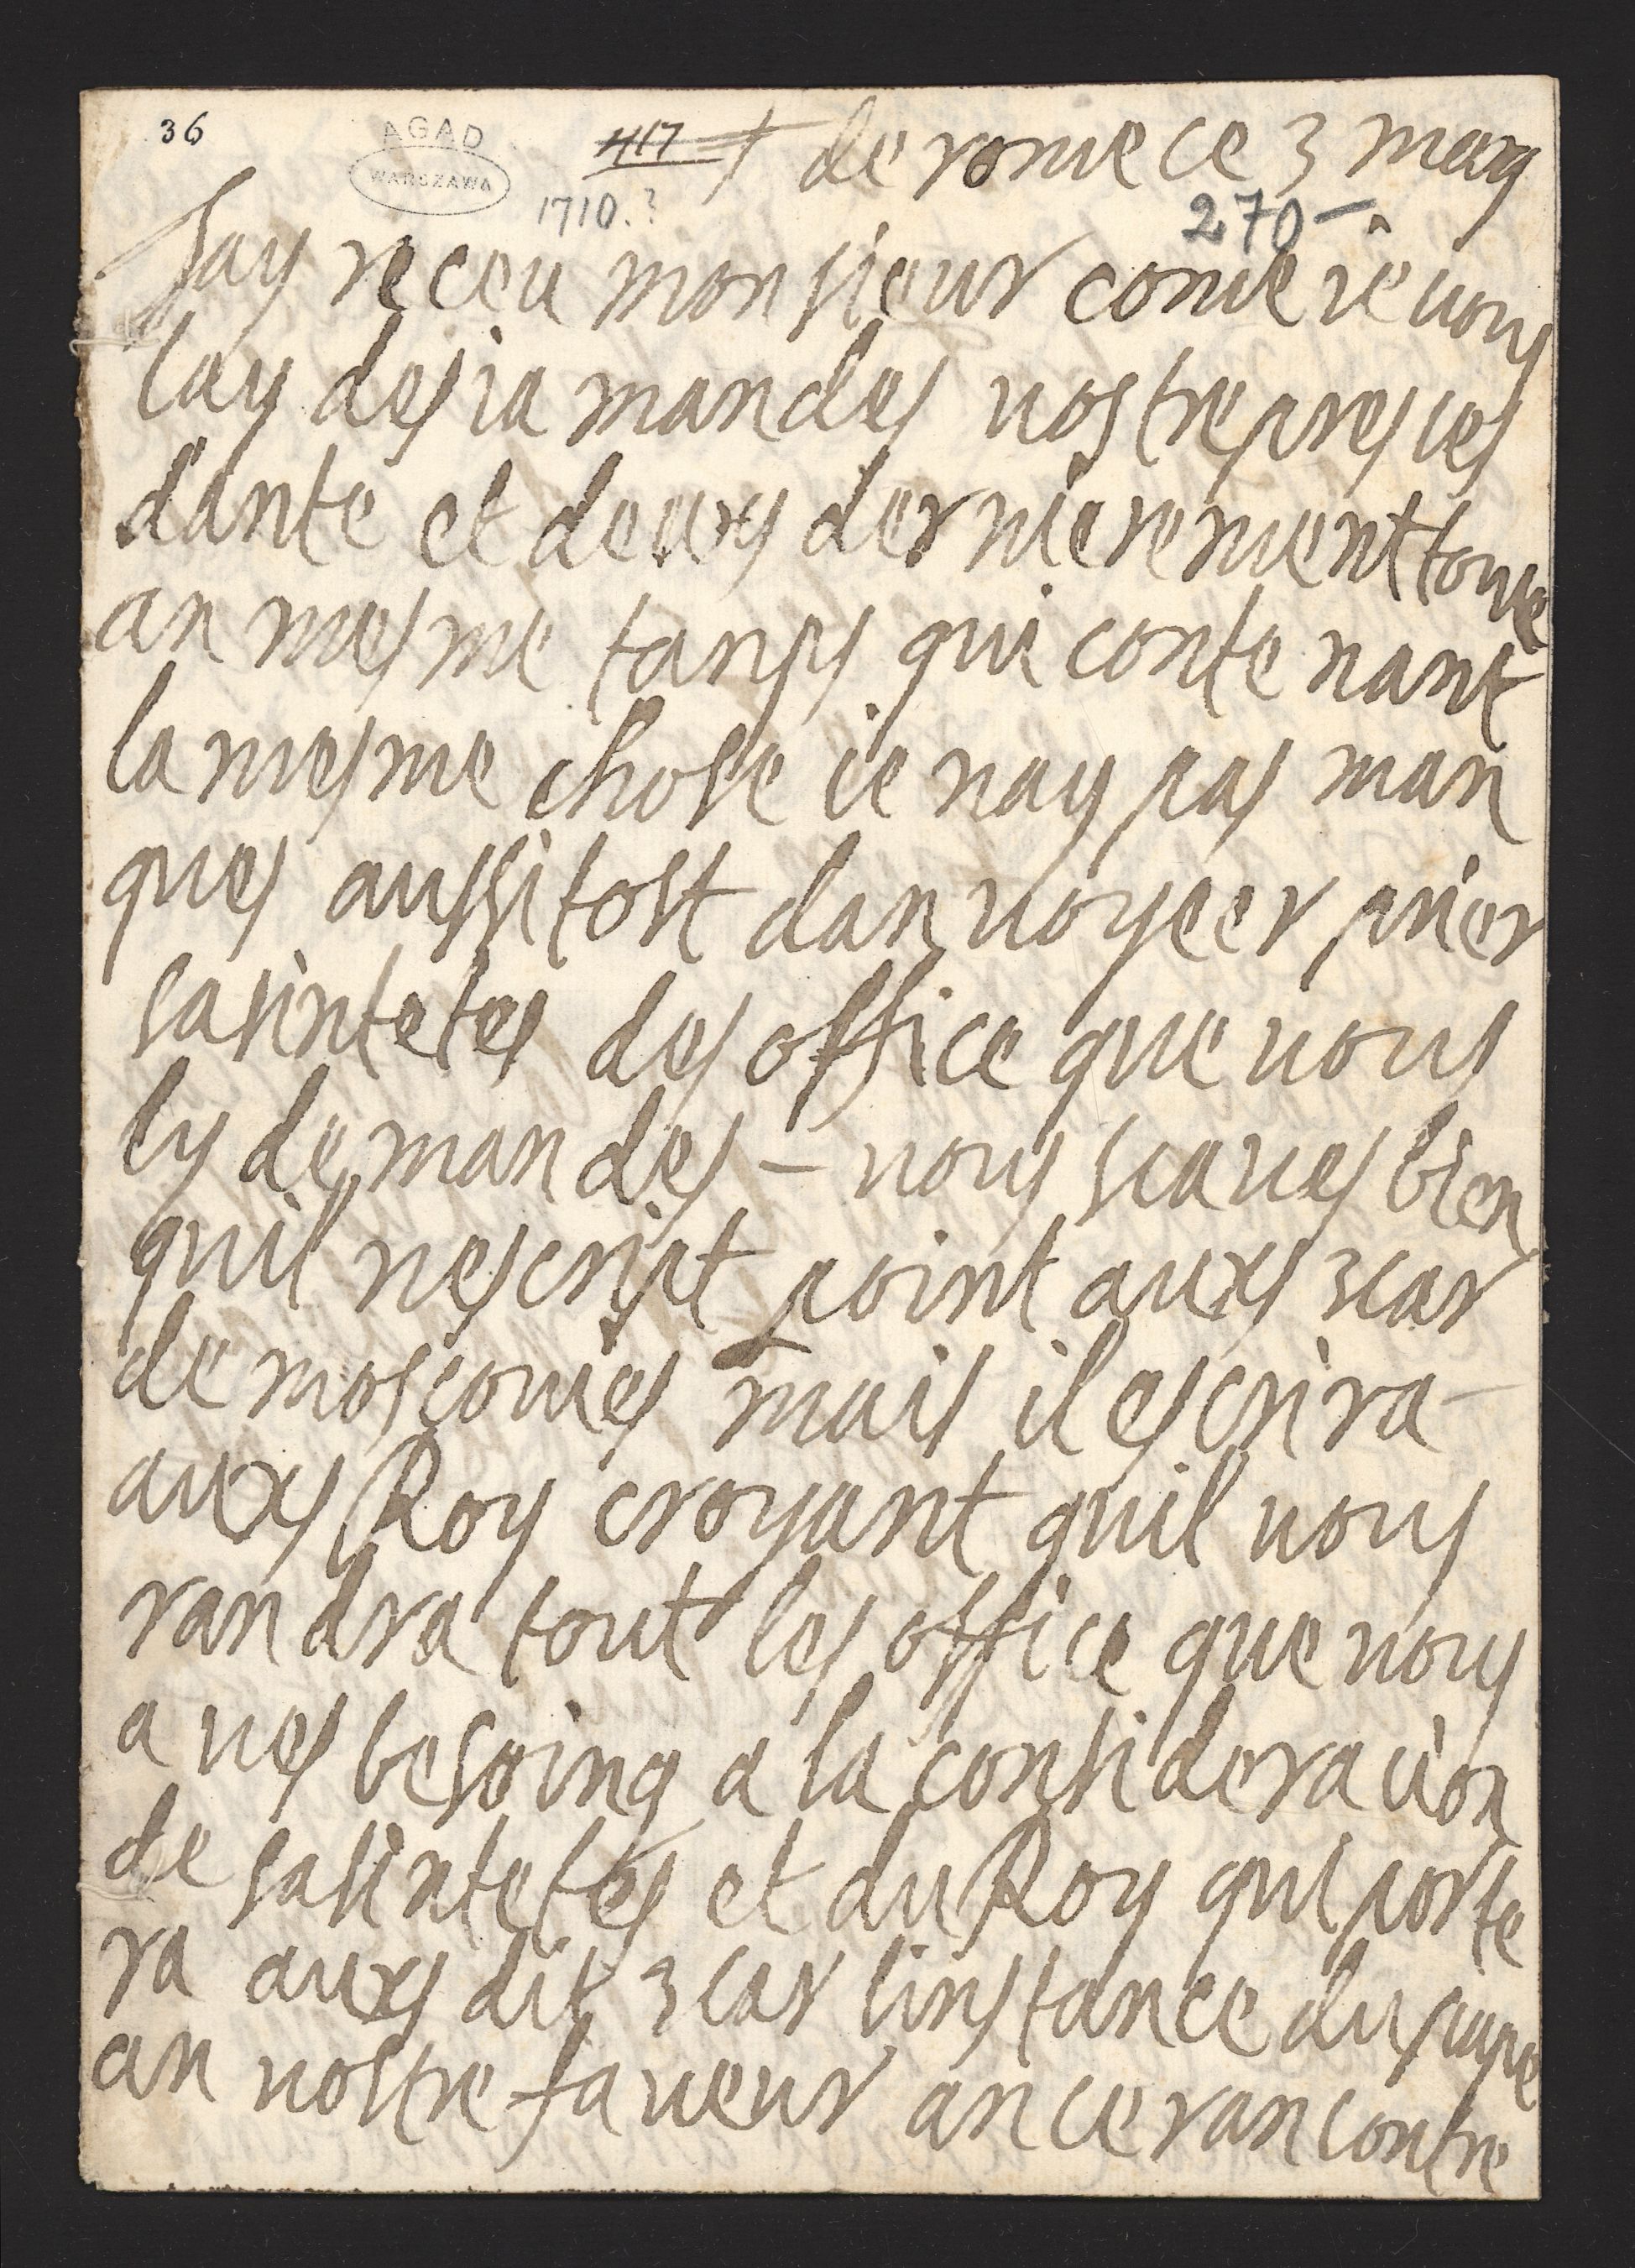 36
AGAD
WARSZAWA
417
1710.?
de rome ce 3 may
270 -
Jay receu monsieur come ie vous
lay desia mandes vostre presces
dante et deuxs dernierement toute
an mesme tansps qui contenant
la mesme chose ie nay pas man
ques aussitost danvoyeer prier
sasintetes des office que vous
ly demandes - vous scaves bien
quil nescript point auxs scar
de moscovies mais il escrira -
auxs Roy croyant quil vous
randra tout les office que vous
aves besoing a la consideracion
de sasintetes et du Roy qui porte
ra auxs dit scar linstance du pape
an vostre faveur an ce rancontre